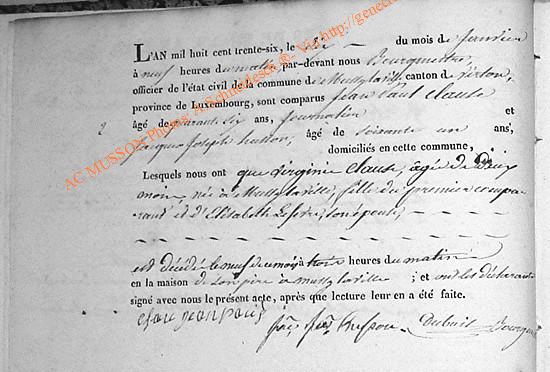 L'AN mil huit cent trente-six, le dix du mois de Janvier
à neuf heures du matin, par-devant nous Bourgmestre
officier de l'état civil de la commune de Mussy la ville, canton de Virton,
province de Luxembourg, sont comparus Jean Paul Clause
âgé de quarante six ans, journalier et
2
Jacques Joseph husson, âgé de soixante un ans,
domiciliés en cette commune,
Lesquels nous ont que Virginie Clause, âgée de Deux
mois, née à Mussy la ville, fille du premier compa
rant et d'Elisabeth Lefevre, son épouse,
est décédé le neuf du mois à trois heures du matin
en la maison de son père à mussy la ville ; et ont les déclarants
signé avec nous le présent acte, après que lecture leur en a été faite.
jean paul
Bourgm
AC MUSSON Photos: A Schneidesch ®. Via http://genec